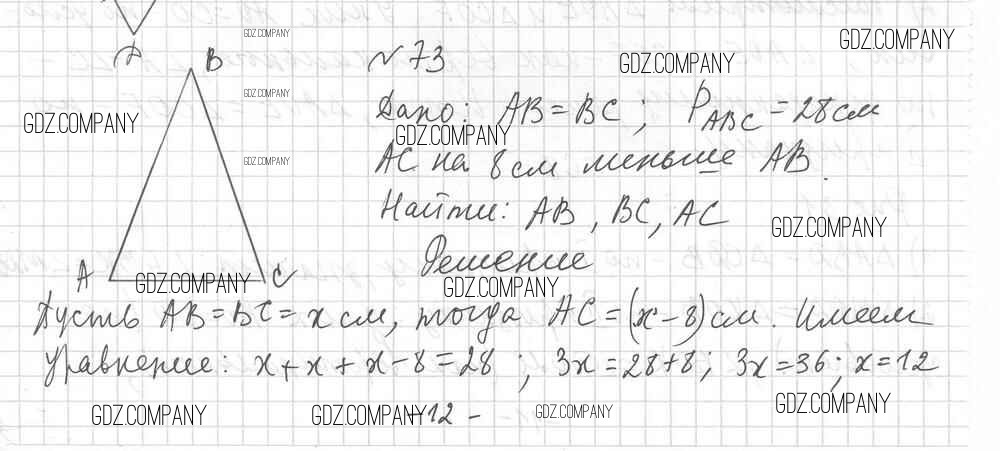 GDZ.COMPANY
GDZ.COMPANY
GDZ.COMPANY
B
№ 73
GDZ.COMPANY
Дано: AB = BC ; P ABC = 28 см
GDZ.COMPANY
GDZ.COMPANY
AC на 8 см меньше AB.
GDZ.COMPANY
Найти: AB, BC, AC
GDZ.COMPANY
Решение
A
GDZ.COMPANY
C
GDZ.COMPANY
Пусть AB = BC = x см, тогда AC = (x - 8) см. Имеем
уравнение: x + x + x - 8 = 28 ; 3x = 28 + 8 ; 3x = 36 ; x = 12
GDZ.COMPANY
GDZ.COMPANY
12 -
GDZ.COMPANY
GDZ.COMPANY